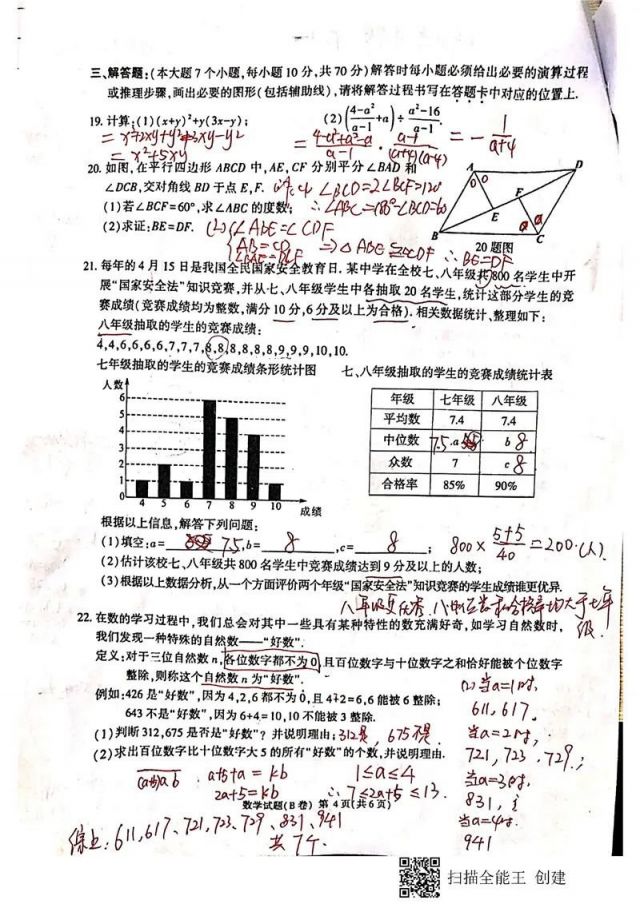 三、解答题:(本大题7个小题,每小题10分,共70分)解答时每小题必须给出必要的演算过程
或推理步骤,画出必要的图形(包括辅助线),请将解答过程书写在答题卡中对应的位置上.
19. 计算:(1)(x+y)²+y(3x-y);  (2)(4-a²/a-1+a)÷a²-16/a-1.
= x²+2xy+y²+3xy-y²  = 4-a²+a²-a/a-1 · a-1/(a+4)(a-4) = -1/a+4
= x²+5xy
20. 如图,在平行四边形ABCD中,AE,CF分别平分∠BAD和
∠DCB,交对角线BD于点E,F. ∠BCD=2∠BCF=120°
(1)若∠BCF=60°,求∠ABC的度数; ∴∠ABC=180°-∠BCD=60
(2)求证:BE=DF. (2) ∠ABE=∠CDF
AB=CD ⇒△ABE≌△CDF ∴BE=DF
A D F E B C
20题图
21. 每年的4月15日是我国全民国家安全教育日.某中学在全校七、八年级共800名学生中开
展“国家安全法”知识竞赛,并从七、八年级学生中各抽取20名学生,统计这部分学生的竞
赛成绩(竞赛成绩均为整数,满分10分,6分及以上为合格).相关数据统计、整理如下:
八年级抽取的学生的竞赛成绩:
4,4,6,6,6,6,7,7,7,8,8,8,8,8,8,9,9,9,10,10.
七年级抽取的学生的竞赛成绩条形统计图
七、八年级抽取的学生的竞赛成绩统计表
人数
6
5
4
3
2
1
0 4 5 6 7 8 9 10 成绩
年级 七年级 八年级
平均数 7.4 7.4
中位数 7.5 a b 8
众数 7 c 8
合格率 85% 90%
根据以上信息,解答下列问题:
(1)填空:a= 7.5,b= 8,c= 8; 800×5+5/40=200(人)
(2)估计该校七、八年级共800名学生中竞赛成绩达到9分及以上的人数;
(3)根据以上数据分析,从一个方面评价两个年级“国家安全法”知识竞赛的学生成绩谁更优异.
级.
22. 在数的学习过程中,我们总会对其中一些具有某种特性的数充满好奇,如学习自然数时,
我们发现一种特殊的自然数——“好数”.
定义:对于三位自然数n,各位数字都不为0,且百位数字与十位数字之和恰好能被个位数字
整除,则称这个自然数n为“好数”.
例如:426是“好数”,因为4,2,6都不为0,且4+2=6,6能被6整除;
643不是“好数”,因为6+4=10,10不能被3整除.
(1)判断312,675是否是“好数”?并说明理由; 312是,675不是.
(2)求出百位数字比十位数字大5的所有“好数”的个数,并说明理由.
(2)当a=1时,
611,617.
当a=2时,
721,723,729;
当a=3时,
831,;
当a=4时.
941
(a+5)ab a+5+a=kb 1≤a≤4
2a+5=kb ∴7≤2a+5≤13.
数学试题(B卷) 第4页(共6页)
综上:611,617、721,723、729、831、941
共7个.
扫描全能王 创建